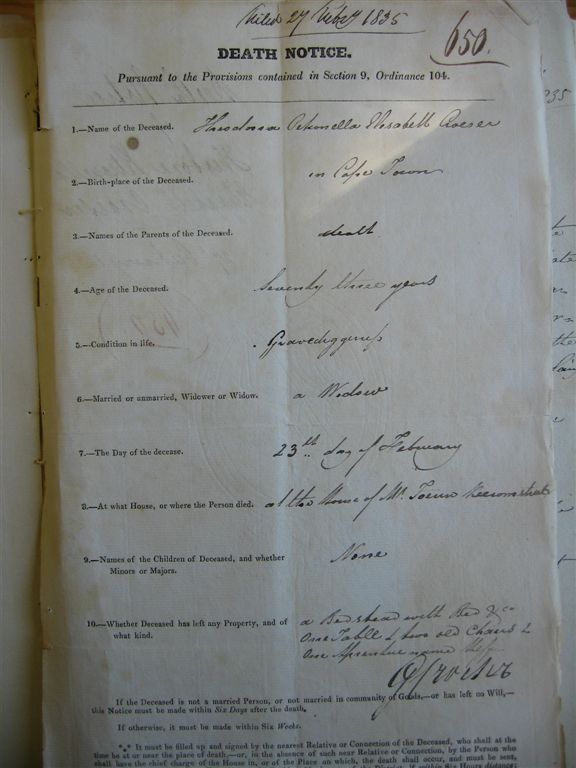 Filed 27 Feby 1835
650.
DEATH NOTICE.
Pursuant to the Provisions contained in Section 9, Ordinance 104.
1.—Name of the Deceased. Theodora Petronella Elisabeth Croeser
2.—Birth-place of the Deceased. in Cape Town
3.—Names of the Parents of the Deceased. death
4.—Age of the Deceased. Seventy three years
5.—Condition in life. Gravediggeress
6.—Married or unmarried, Widower or Widow. a Widow
7.—The Day of the decease. 23th day of February
8.—At what House, or where the Person died. at the House of Mr. Keeromstraat
9.—Names of the Children of Deceased, and whether None
Minors or Majors.
10.—Whether Deceased has left any Property, and of a Bedstead with Bed &c
what kind. One Table & two old Chairs &
One name
If the Deceased is not a married Person, or not married in community of Goods,—or has left no Will,—
this Notice must be made within Six Days after the death.
If otherwise, it must be made within Six Weeks.
*** It must be filled up and signed by the nearest Relative or Connection of the Deceased, who shall at the
time be at or near the place of death.—or, in the absence of such near Relative or Connection, by the Person who
shall have the chief charge of the House in, or of the Place on which, the death shall occur, and must be sent,